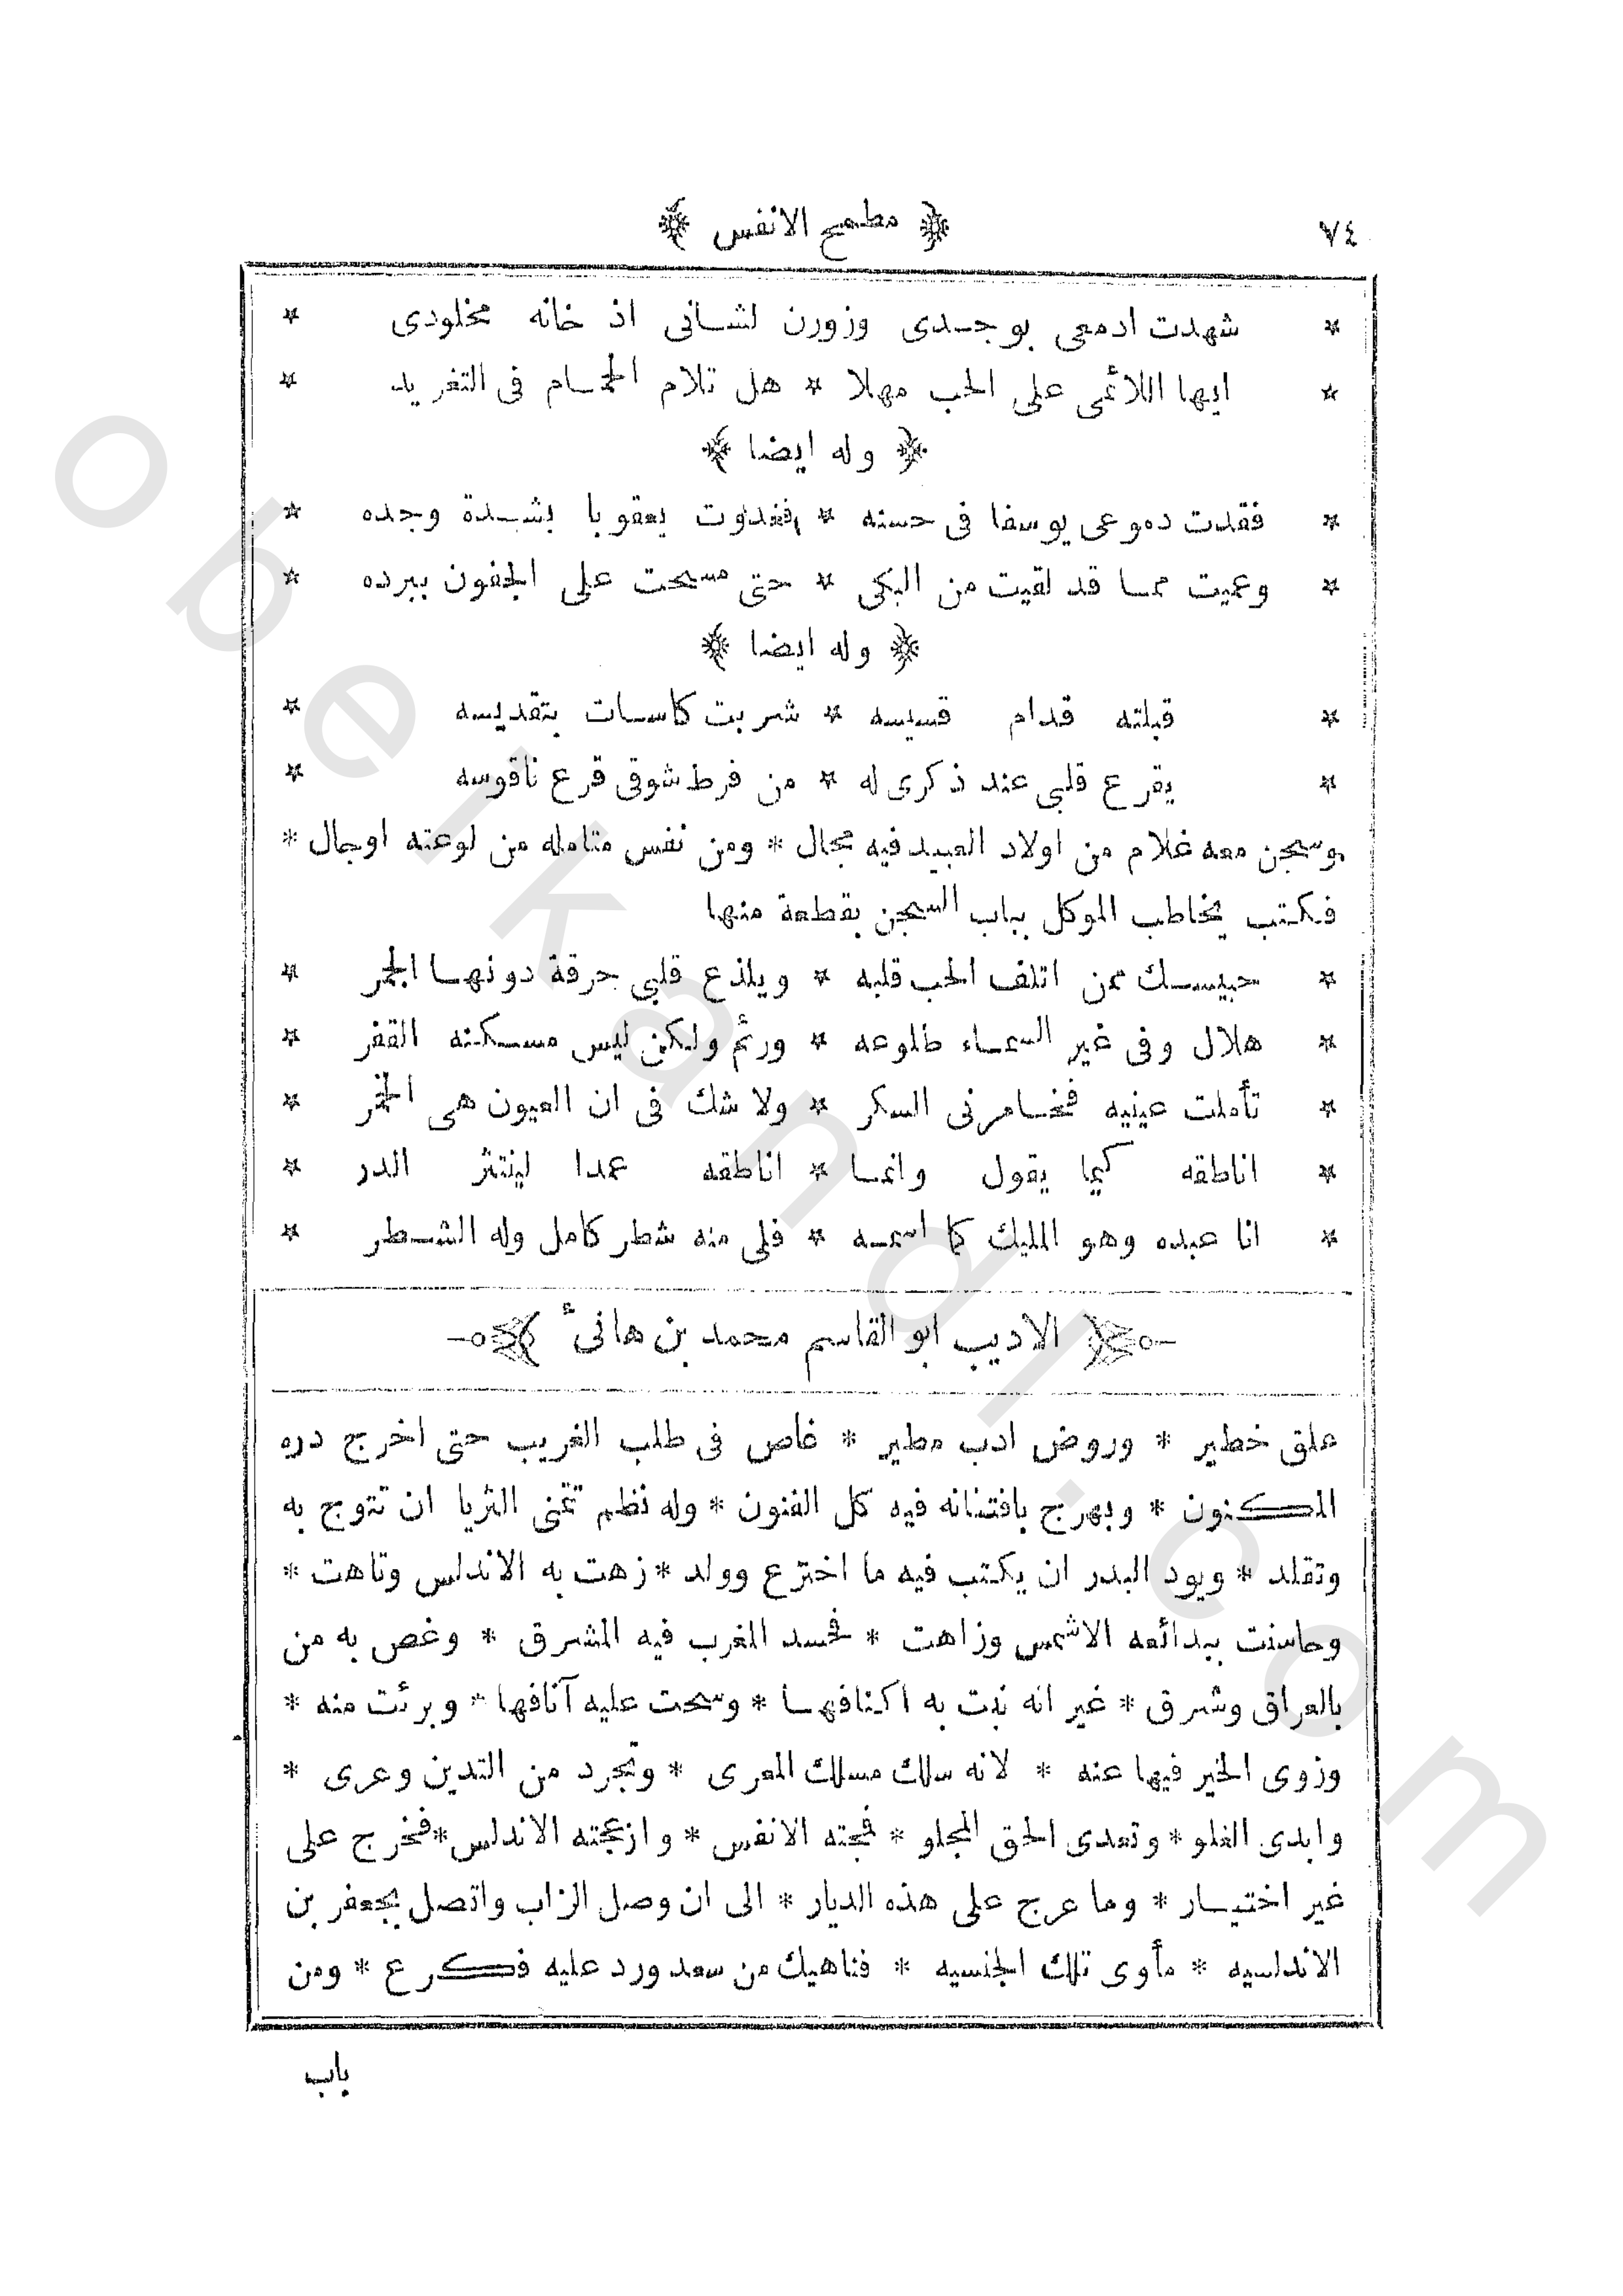 ٧٤
﴿ مطمح الانفس ﴾
* شهدت ادمعى بوجدى وزورن لشانى اذ خانه مخلودى *
* ايها اللائمى على الحب مهلا * هل تلام الحمام فى التغريد *
﴿ وله ايضا ﴾
* فقدت دموعى يوسفا فى حسنه * فغدوت يعقوبا بشدة وجده *
* وعميت مما قد لقيت من البكى * حتى مسحت على الجفون ببرده *
﴿ وله ايضا ﴾
* قبلته قدام قسيسه * شربت كاسات بتقديسه *
* يقرع قلبى عند ذكرى له * من فرط شوقى قرع ناقوسه *
وسجن معه غلام من اولاد العبيد فيه مجال * ومن نفس متامله من لوعته اوجال *
فكتب يخاطب الموكل بباب السجن بقطعة منها
* حبيسك ممن اتلف الحب قلبه * ويلذع قلبى حرقة دونها الجمر *
* هلال وفى غير السماء طلوعه * ورئم ولكن ليس مسكنه القفر *
* تأملت عينيه فخامرنى السكر * ولا شك فى ان العيون هى الخمر *
* اناطقه كيما يقول وانما * اناطقه عمدا لينتثر الدر *
* انا عبده وهو المليك كما اسمه * فلى منه شطر كامل وله الشطر *
﴿ الاديب ابو القاسم محمد بن هانئ ﴾
علق خطير * وروض ادب مطير * غاص فى طلب الغريب حتى اخرج دره
المكنون * وبهرج بافتنانه فيه كل الفنون * وله نظم تتمنى الثريا ان تتوج به
وتقلد * ويود البدر ان يكتب فيه ما اخترع وولد * زهت به الاندلس وتاهت *
وحاسنت ببدائعه الاشمس وزاهت * فحسد المغرب فيه المشرق * وغص به من
بالعراق وشرق * غير انه نبت به اكنافها * وسمحت عليه آنافها * وبرئت منه *
وزوى الخير فيها عنه * لانه سلك مسلك المعرى * وتجرد من التدين وعرى *
وابدى الغلو * وتعدى الحق المجلو * فمجته الانفس * وازعجته الاندلس * فخرج على
غير اختيار * وما عرج على هذه الديار * الى ان وصل الزاب واتصل بجعفر بن
الاندلسيه * مأوى تلك الجنسيه * فناهيك من سعد ورد عليه فكرع * ومن
باب
obeikandl.com